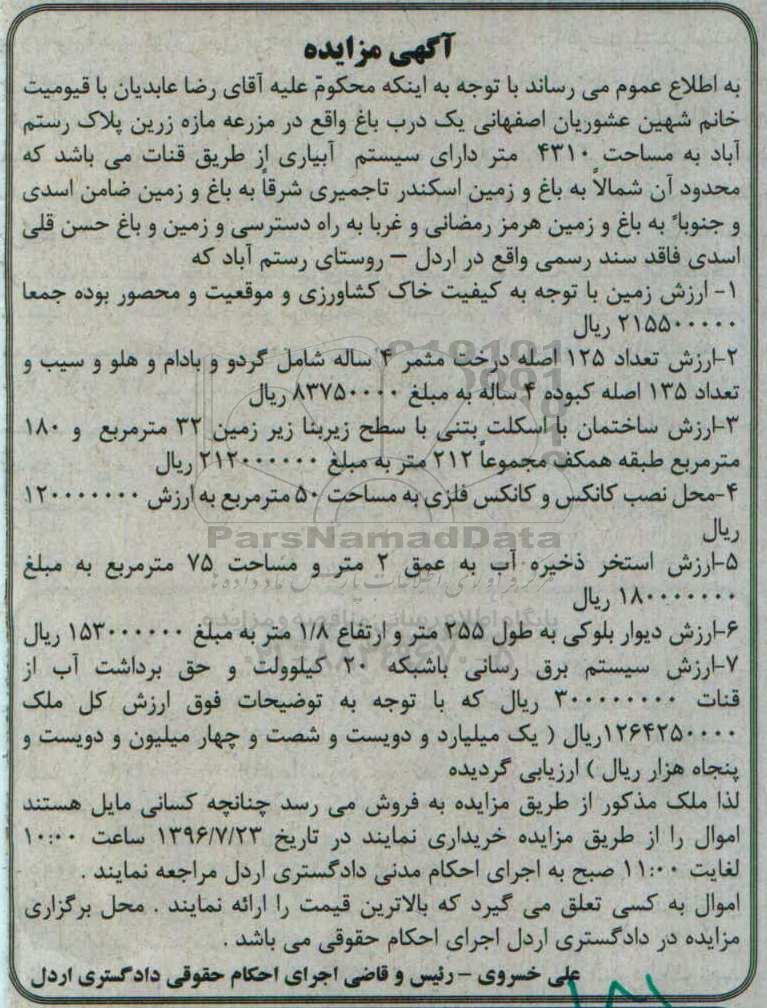 آگهی مزایده
به اطلاع عموم می رساند با توجه به اینکه محکومّ علیه آقای رضا عابدیان با قیومیت
خانم شهین عشوریان اصفهانی یک درب باغ واقع در مزرعه مازه زرین پلاک رستم
آباد به مساحت ۴۳۱۰ متر دارای سیستم آبیاری از طریق قنات می باشد که
محدود آن شمالاً به باغ و زمین اسکندر تاجمیری شرقاً به باغ و زمین ضامن اسدی
و جنوباً به باغ و زمین هرمز رمضانی و غربا به راه دسترسی و زمین و باغ حسن قلی
اسدی فاقد سند رسمی واقع در اردل – روستای رستم آباد که
۱- ارزش زمین با توجه به کیفیت خاک کشاورزی و موقعیت و محصور بوده جمعا
۲۱۵۵۰۰۰۰۰ ریال
۲-ارزش تعداد ۱۲۵ اصله درخت مثمر ۴ ساله شامل گردو و بادام و هلو و سیب و
تعداد ۱۳۵ اصله کبوده ۴ ساله به مبلغ ۸۳۷۵۰۰۰۰ ریال
۳-ارزش ساختمان با اسکلت بتنی با سطح زیربنا زیر زمین ۳۲ مترمربع و ۱۸۰
مترمربع طبقه همکف مجموعاً ۲۱۲ متر به مبلغ ۲۱۲۰۰۰۰۰۰ ریال
۴-محل نصب کانکس و کانکس فلزی به مساحت ۵۰ مترمربع به ارزش ۱۲۰۰۰۰۰۰۰
ریال
ParsNamadData
۵-ارزش استخر ذخیره آب به عمق ۲ متر و مساحت ۷۵ مترمربع به مبلغ
۱۸۰۰۰۰۰۰۰ ریال
۶-ارزش دیوار بلوکی به طول ۲۵۵ متر و ارتفاع ۱/۸ متر به مبلغ ۱۵۳۰۰۰۰۰۰ ریال
۷-ارزش سیستم برق رسانی باشبکه ۲۰ کیلوولت و حق برداشت آب از
قنات ۳۰۰۰۰۰۰۰۰ ریال که با توجه به توضیحات فوق ارزش کل ملک
۱۲۶۴۲۵۰۰۰۰ریال ( یک میلیارد و دویست و شصت و چهار میلیون و دویست و
پنجاه هزار ریال ) ارزیابی گردیده
لذا ملک مذکور از طریق مزایده به فروش می رسد چنانچه کسانی مایل هستند
اموال را از طریق مزایده خریداری نمایند در تاریخ ۱۳۹۶/۷/۲۳ ساعت ۱۰:۰۰
لغایت ۱۱:۰۰ صبح به اجرای احکام مدنی دادگستری اردل مراجعه نمایند .
اموال به کسی تعلق می گیرد که بالاترین قیمت را ارائه نمایند . محل برگزاری
مزایده در دادگستری اردل اجرای احکام حقوقی می باشد .
علی خسروی – رئیس و قاضی اجرای احکام حقوقی دادگستری اردل